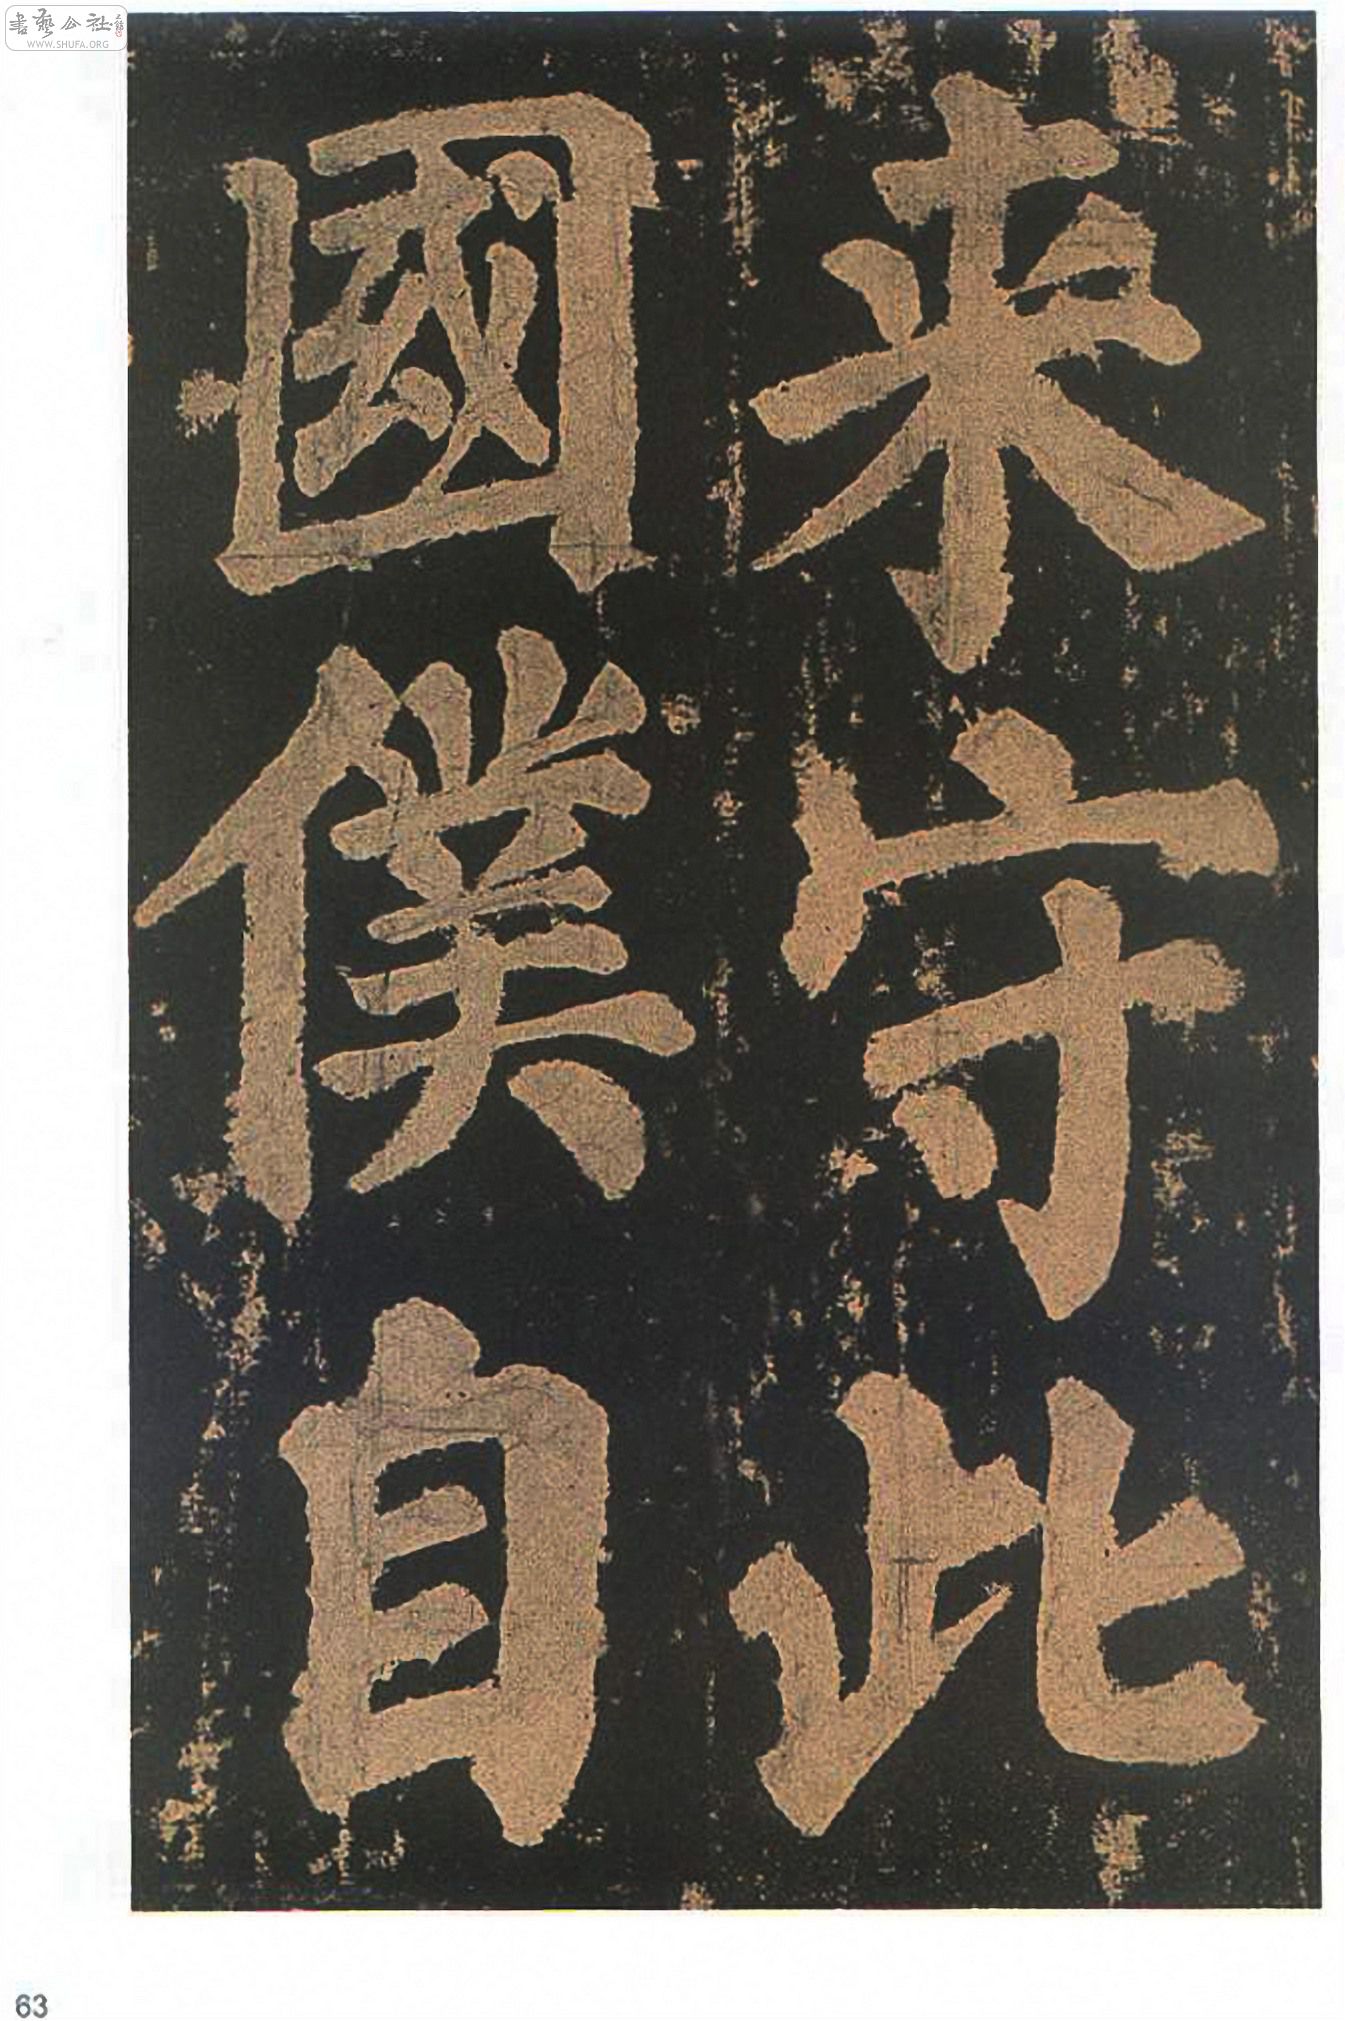 来守此
國僕自
書藝公社
WWW.SHUFA.ORG
63